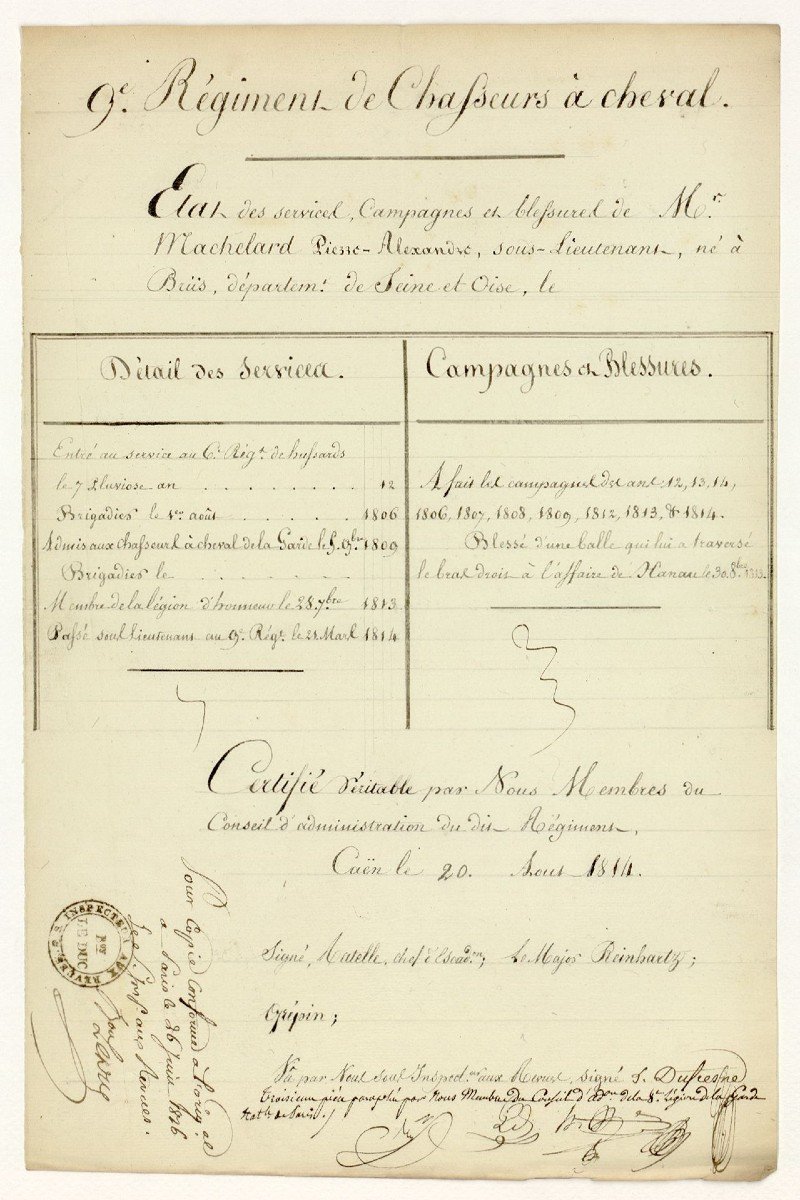 9e. Régiment de Chasseurs à cheval.
Etat des services, Campagnes et blessures de Mr.
Machelard Pierre-Alexandre, sous-Lieutenant, né à
Briis, départemt. de Seine et Oise, le
Détail des Services.
Entré au service au 6e. Régt. de hussards
le 7 Pluviose an . . . . . . . . 12
Brigadier le 1er. août . . . . . 1806
Admis aux Chasseurs à cheval de la Garde le 5. 9bre. 1809
Brigadier le . . . . . . . .
Membre de la légion d'honneur le 28 7bre 1813
Passé sous Lieutenant au 9e. Régt. le 21 Mars 1814
Campagnes et Blessures.
A fait les campagnes des ans: 12, 13, 14,
1806, 1807, 1808, 1809, 1812, 1813, & 1814.
Blessé d'une balle qui lui a traversé
le bras droit à l'affaire de Hanau le 30. 8bre 1813.
Certifié Véritable par Nous Membres du
Conseil d'administration du dit Régiment,
Caën le 20. Aout 1814.
Signé, Matelle, chef d'Escadon; Le Major Reinhartz;
Crépin;
Vu par Nous Sous Inspecteur aux Revues, signé S. Dufresne
Troisieme pièce paraphée par Nous Membres du Conseil d'adon de la 8e Légion de la Garde
Natle de Paris
Pour Coppie Conforme a l'orig al
a Paris le 26 Juin 1816
Le S. Insp. aux Revues.
Leduc
S. S. INSPECTEUR AUX REVUES
LEDUC